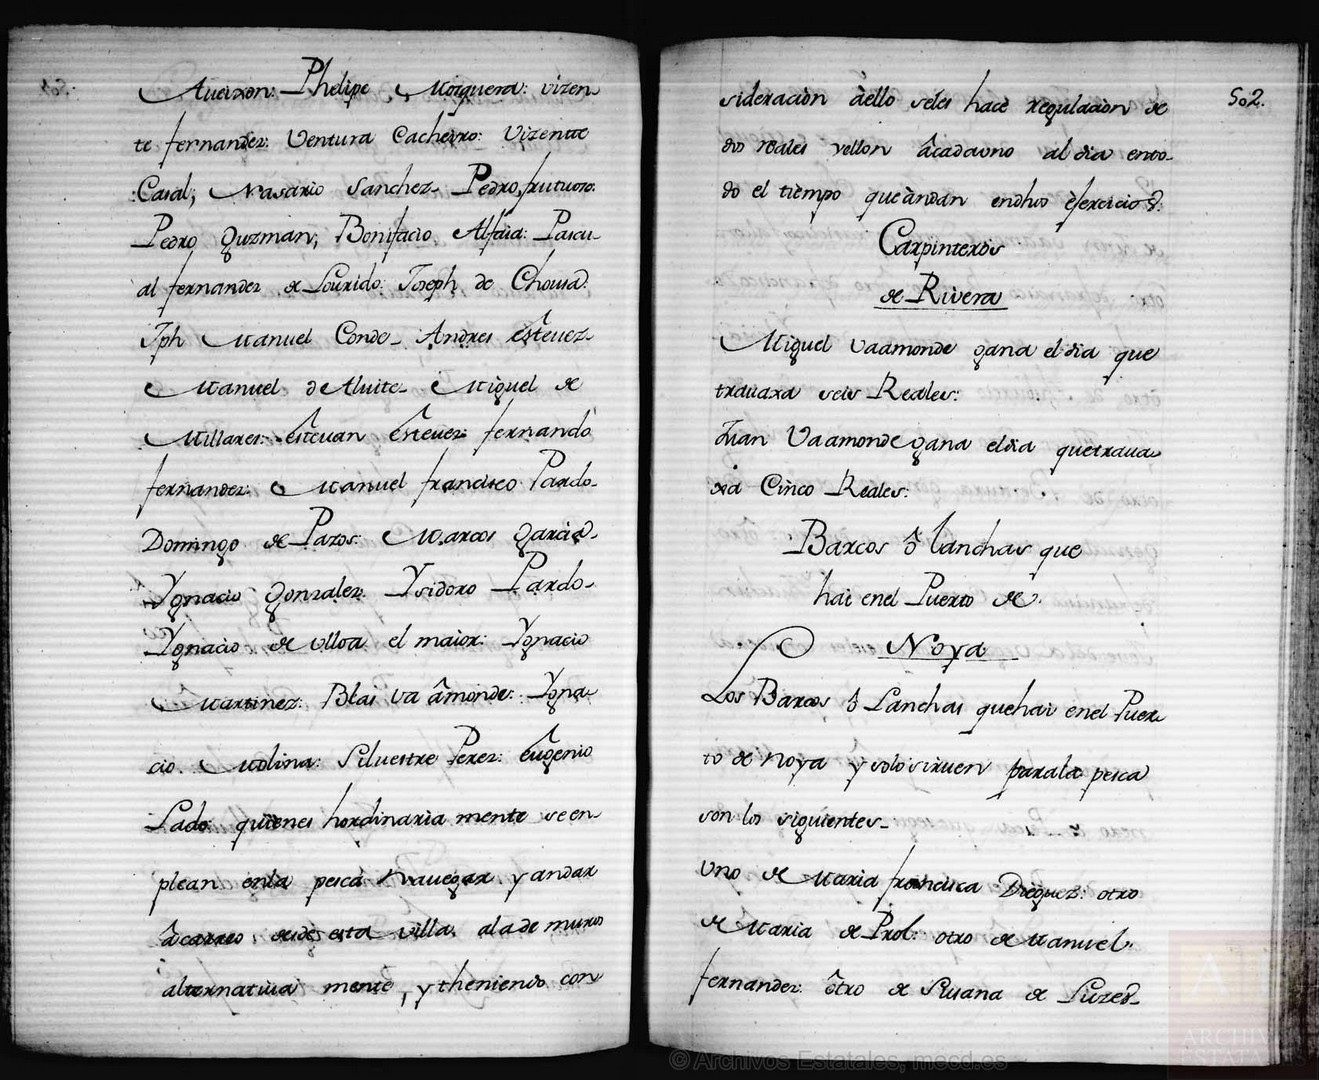 Aueixon: Phelipe Mosquera: vizen
te fernandez: Ventura Cacheiro: Vizente
Casal; Nasario Sanchez Pedro frutuoso:
Pedro Guzman; Bonifacio Alfaia: Pascu
al fernandez de Lourido: Joseph de Chousa:
Jph Manuel Conde Andres esteuez
Manuel de Aluite Miguel de
Millares: esteuan esteuez fernando
fernandez: Manuel francisco Pardo
Domingo de Pazos: Marcos Garcia
Ygnacio Gonzalez: Ysidoro Pardo
Ygnacio de ulloa el maior: Ygnacio
Martinez: Blas Va âmonde: Ygna
cio Molina: Siluestre Perez: eugenio
Lado: quienes hordinaria mente se en
plean enla pesca Nauegar y andar
âcarreo desde esta villa, ala de muros
alternatiua mente, y theniendo con
502.
sideraciòn àello seles hace regulacion de
dos reales vellon âcadauno al dia ento
do el tiempo que àndan endho êjercicio
Carpinteros
de Rivera
Miguel Vaamonde gana el dia que
trauaxa seis Reales:
Juan Vaamonde gana eldia quetraua
xa Cinco Reales:
Barcos ô lanchas que
hai enel Puerto de
Noya
Los Barcos ô Lanchas quehai enel Puer
to de Noya y solo siruen parala pesca
son los siguientes
Uno de Maria francisca Dieguez: otro
de Maria de Prol: otro de Manuel
fernandez: ôtro de Susana de
© Archivos Estatales, mecd.es
ARCHIV
ESTATA